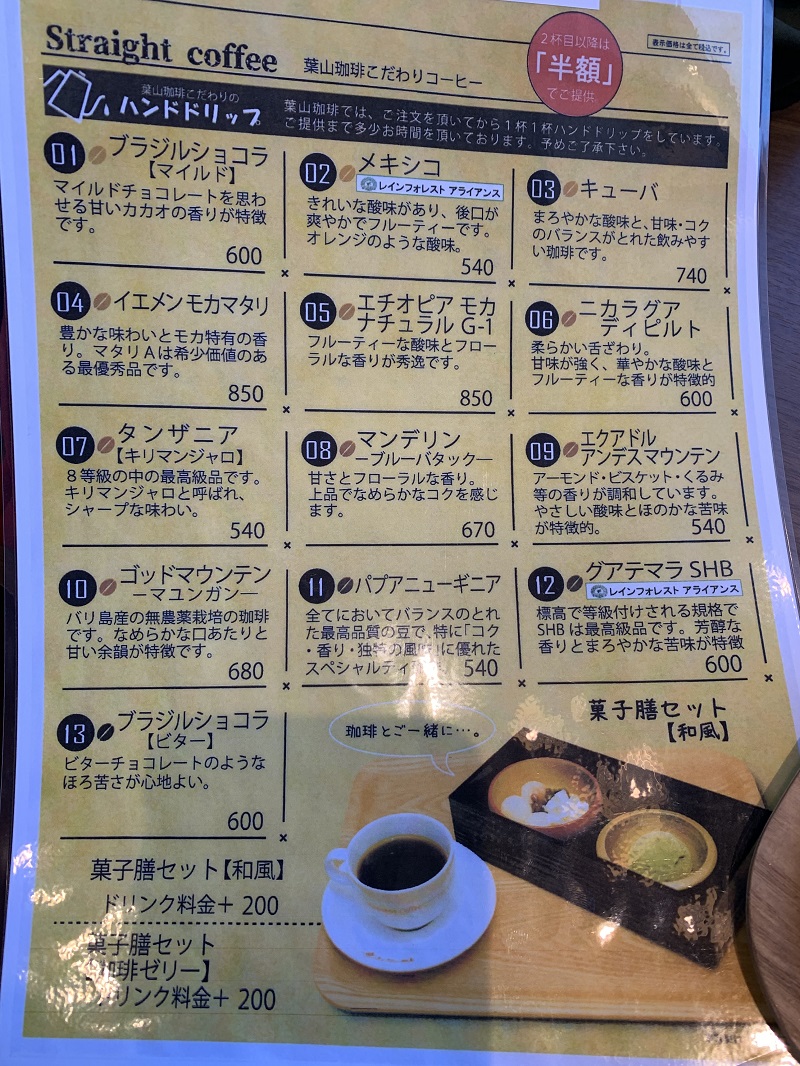 Straight coffee
葉山珈琲こだわりコーヒー
2杯目以降は
「半額」
てご提供
表示価格は全て税込です。
葉山珈琲こだわりの
ハンドドリップ。
葉山珈琲では、ご注文を頂いてから1杯1杯ハンドドリップをしています。
ご提供まで多少お時間を頂いております。予めご了承下さい。
01 ブラジルショコラ
【マイルド】
マイルドチョコレートを思わ
せる甘いカカオの香りが特徴
です。
600
02 メキシコ
レインフォレスト アライアンス
きれいな酸味があり、後口が
爽やかでフルーティーです。
オレンジのような酸味。
540
03 キューバ
まろやかな酸味と、甘味・コク
のバランスがとれた飲みやす
い珈琲です。
740
04 イエメンモカマタリ
豊かな味わいとモカ特有の香
り。マタリAは希少価値のあ
る最優秀品です。
850
05 エチオピア モカ
ナチュラル G-1
フルーティーな酸味とフロー
ラルな香りが秀逸です。
850
06 ニカラグア
ディピルト
柔らかい舌ざわり。
甘味が強く、華やかな酸味と
フルーティーな香りが特徴的
600
07 タンザニア
【キリマンジャロ】
8等級の中の最高級品です。
キリマンジャロと呼ばれ、
シャープな味わい。
540
08 マンデリン
―ブルーバタック―
甘さとフローラルな香り。
上品でなめらかなコクを感じ
ます。
670
09 エクアドル
アンデスマウンテン
アーモンド・ビスケット・くるみ
等の香りが調和しています。
やさしい酸味とほのかな苦味
が特徴的。
540
10 ゴッドマウンテン
―マユンガン―
バリ島産の無農薬栽培の珈琲
です。なめらかな口あたりと
甘い余韻が特徴です。
680
11 パプアニューギニア
全てにおいてバランスのとれ
た最高品質の豆で、特に「コク
・香り・独特の風味」に優れた
スペシャルティ
540
12 グアテマラ SHB
レインフォレスト アライアンス
標高で等級付けされる規格で
SHB は最高級品です。芳醇な
香りとまろやかな苦味が特徴
600
13 ブラジルショコラ
【ビター】
ビターチョコレートのような
ほろ苦さが心地よい。
600
珈琲とご一緒に…。
菓子膳セット
【和風】
菓子膳セット【和風】
ドリンク料金+ 200
菓子膳セット
【珈琲ゼリー】
ドリンク料金+ 200